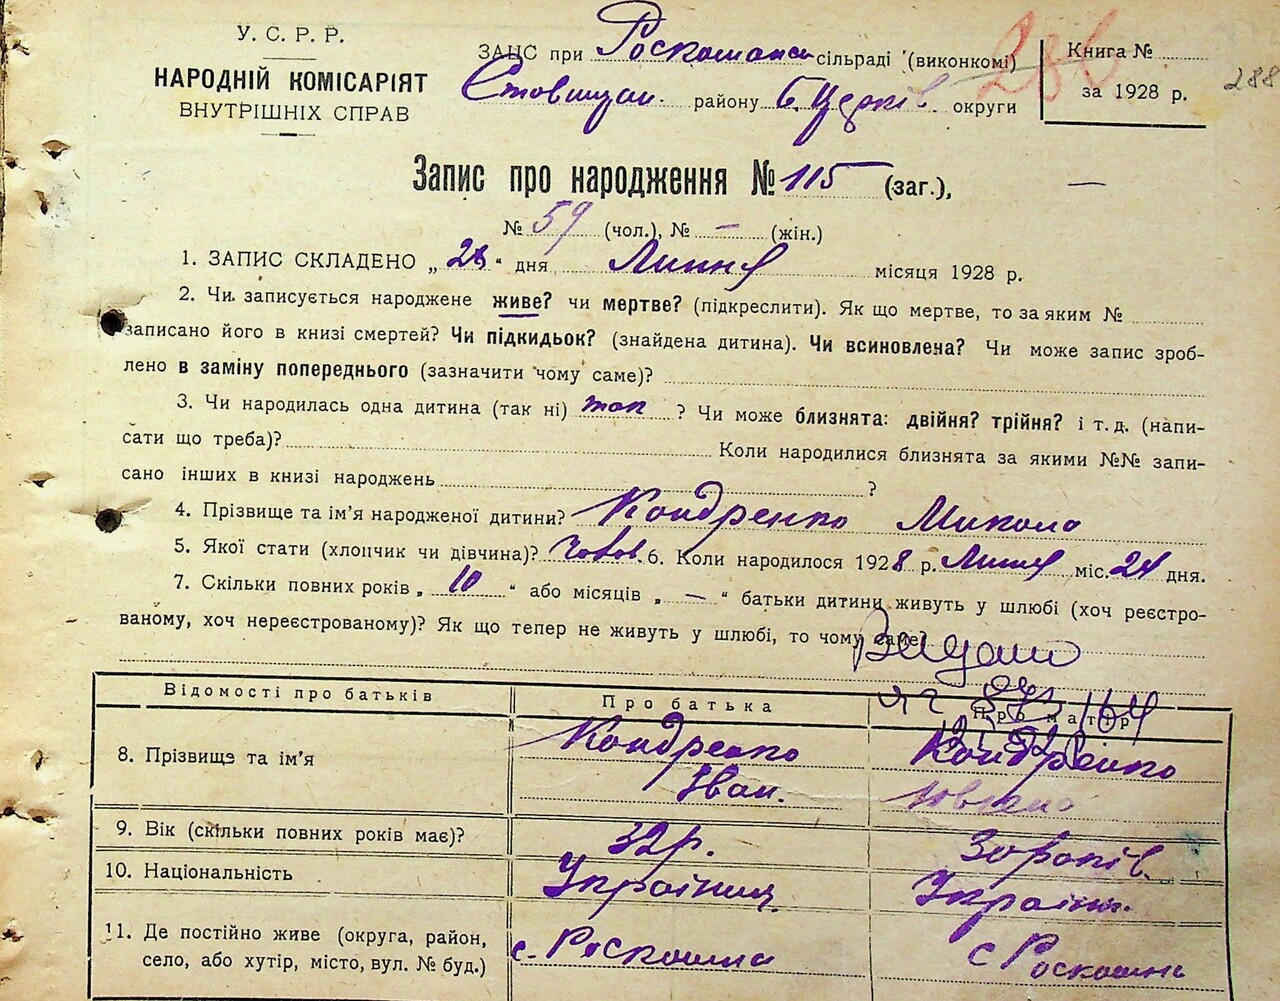 У. С. Р. Р.
НАРОДНІЙ КОМІСАРІЯТ
ВНУТРІШНІХ СПРАВ
ЗАЦС при Роскошанс. сільраді (виконкомі)
району Б. Церків. округи
286
Книга №
за 1928 р.
288
Запис про народження № 115 (заг.), —
№ 59 (чол.), № — (жін.)
1. ЗАПИС СКЛАДЕНО „28“ дня Липня місяця 1928 р.
2. Чи записується народжене живе? чи мертве? (підкреслити). Як що мертве, то за яким №
записано його в книзі смертей? Чи підкидьок? (знайдена дитина). Чи всиновлена? Чи може запис зроб-
лено в заміну попереднього (зазначити чому саме)?
3. Чи народилась одна дитина (так ні) так ? Чи може близнята: двійня? трійня? і т. д. (напи-
сати що треба)? Коли народилися близнята за якими №№ запи-
сано інших в книзі народжень ?
4. Прізвище та ім’я народженої дитини? Кондренко Микола
5. Якої стати (хлопчик чи дівчина)? чолов. 6. Коли народилося 1928 р. Липня міс. 24 дня.
7. Скільки повних років „ 10 “ або місяців „ — “ батьки дитини живуть у шлюбі (хоч реєстро-
ваному, хоч нереєстрованому)? Як що тепер не живуть у шлюбі, то чому саме?
Видано
Відомості про батьків Про батька Про матір
8. Прізвище та ім’я Кондренко Кондренко
Іван.
9. Вік (скільки повних років має)? 32 р. 30 років
10. Національність Українец. Україн.
11. Де постійно живе (округа, район,
село, або хутір, місто, вул. № буд.) с. Роскошна с Роскошна